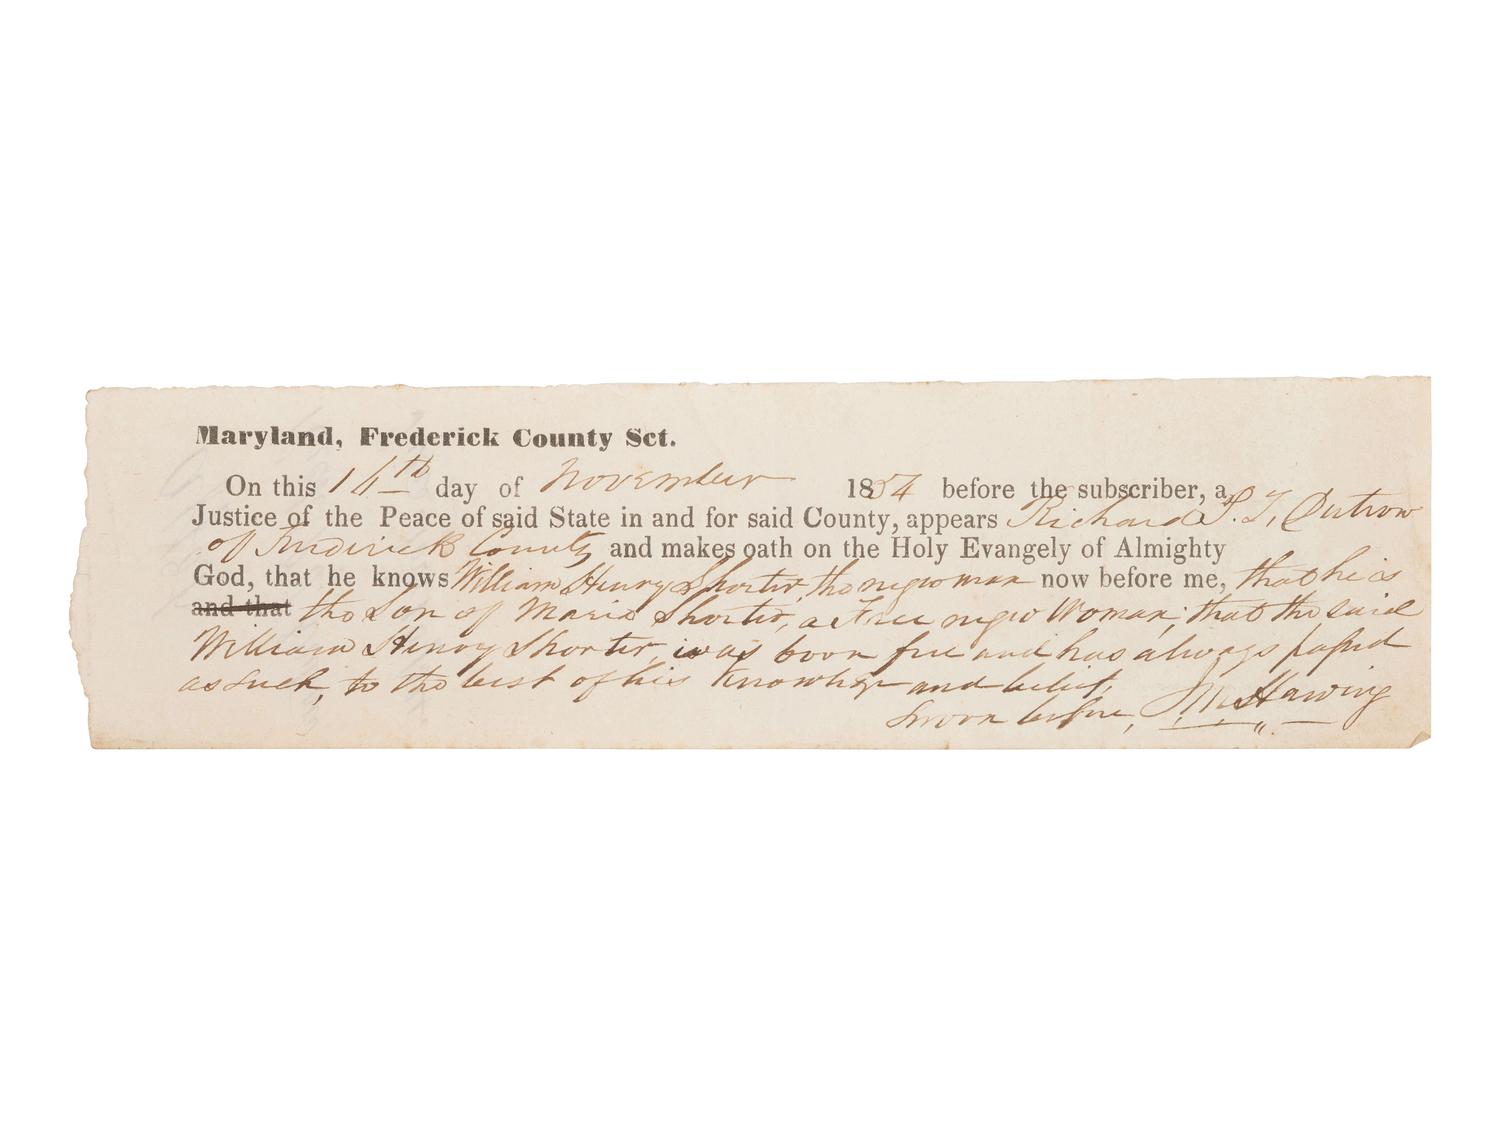 Maryland, Frederick County Sct.
On this 16th day of November 1854 before the subscriber, a
Justice of the Peace of said State in and for said County, appears Richard T. Dutrow
of Frederick County and makes oath on the Holy Evangely of Almighty
God, that he knows William Henry Shorter, the negro man now before me, that he is
and that the Son of Maria Shorter, a Free negro Woman; that the said
William Henry Shorter, was born free and has always passed
as such, to the best of his knowledge and belief,
Sworn before,